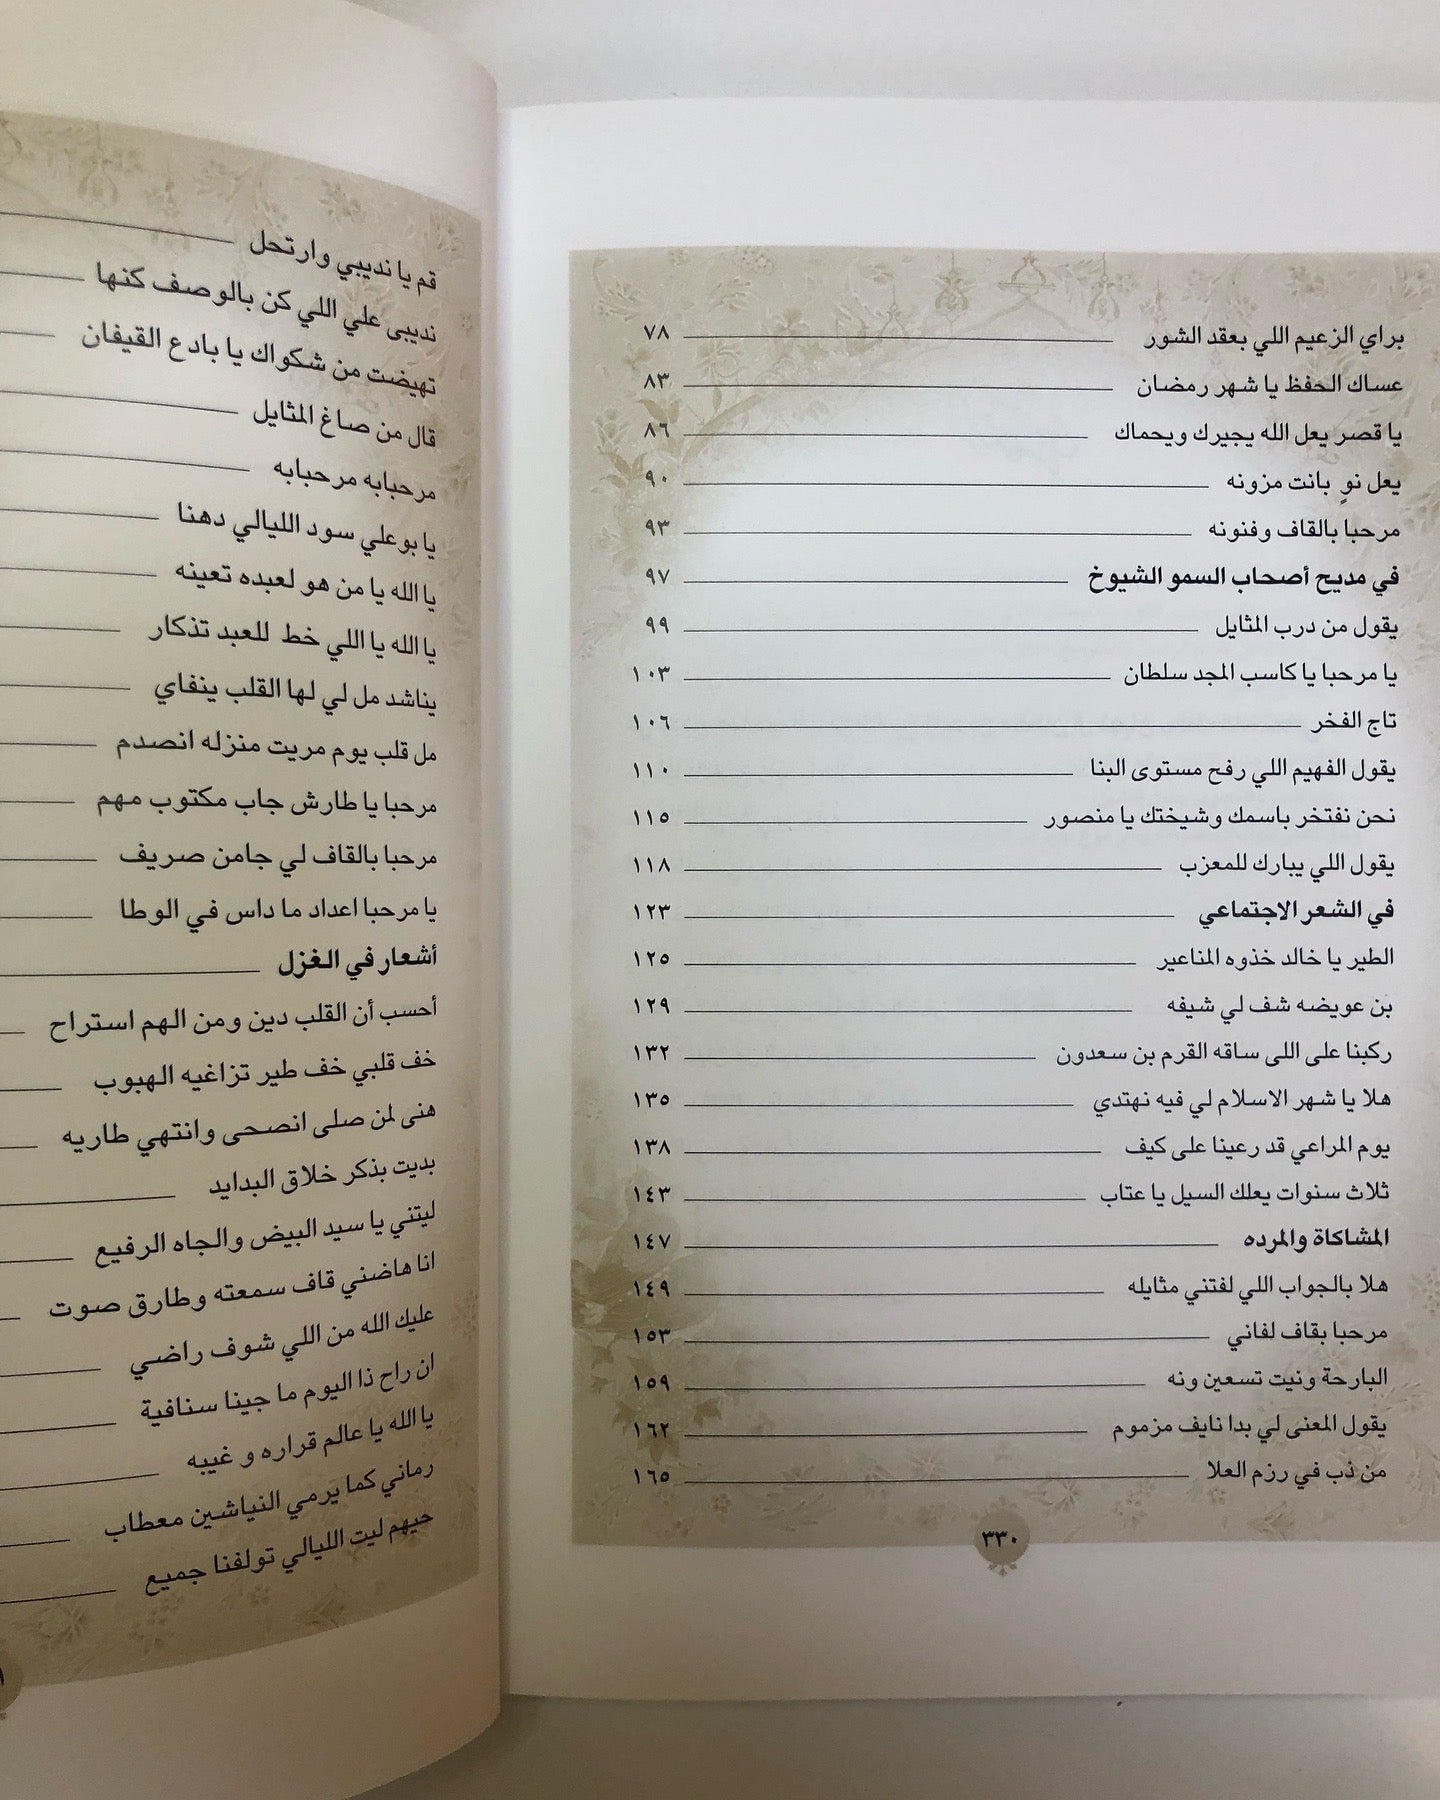 براي الزعيم اللي بعقد الشور ٧٨
عساك الحفظ يا شهر رمضان ٨٣
يا قصر يعل الله يجيرك ويحماك ٨٦
يعل نوٍ بانت مزونه ٩٠
مرحبا بالقاف وفنونه ٩٣
في مديح أصحاب السمو الشيوخ ٩٧
يقول من درب المثايل ٩٩
يا مرحبا يا كاسب المجد سلطان ١٠٣
تاج الفخر ١٠٦
يقول الفهيم اللي رفح مستوى البنا ١١٠
نحن نفتخر باسمك وشيختك يا منصور ١١٥
يقول اللي يبارك للمعزب ١١٨
في الشعر الاجتماعي ١٢٣
الطير يا خالد خذوه المناعير ١٢٥
بن عويضه شف لي شيفه ١٢٩
ركبنا على اللى ساقه القرم بن سعدون ١٣٢
هلا يا شهر الاسلام لي فيه نهتدي ١٣٥
يوم المراعي قد رعينا على كيف ١٣٨
ثلاث سنوات يعلك السيل يا عتاب ١٤٣
المشاكاة والمرده ١٤٧
هلا بالجواب اللي لفتني مثايله ١٤٩
مرحبا بقاف لفاني ١٥٣
البارحة ونيت تسعين ونه ١٥٩
يقول المعنى لي بدا نايف مزموم ١٦٢
من ذب في رزم العلا ١٦٥
٣٣٠
قم يا نديبي وارتحل
نديبى علي اللي كن بالوصف كنها
تهيضت من شكواك يا بادع القيفان
قال من صاغ المثايل
مرحبابه مرحبابه
يا بوعلي سود الليالي دهنا
يا الله يا من هو لعبده تعينه
يا الله يا اللي خط للعبد تذكار
يناشد مل لي لها القلب ينفاي
مل قلب يوم مريت منزله انصدم
مرحبا يا طارش جاب مكتوب مهم
مرحبا بالقاف لي جامن صريف
يا مرحبا اعداد ما داس في الوطا
أشعار في الغزل
أحسب أن القلب دين ومن الهم استراح
خف قلبي خف طير تزاغيه الهبوب
هنى لمن صلى انصحى وانتهي طاريه
بديت بذكر خلاق البدايد
ليتني يا سيد البيض والجاه الرفيع
انا هاضني قاف سمعته وطارق صوت
عليك الله من اللي شوف راضي
ان راح ذا اليوم ما جينا سنافية
يا الله يا عالم قراره و غيبه
رماني كما يرمي النياشين معطاب
حيهم ليت الليالي تولفنا جميع